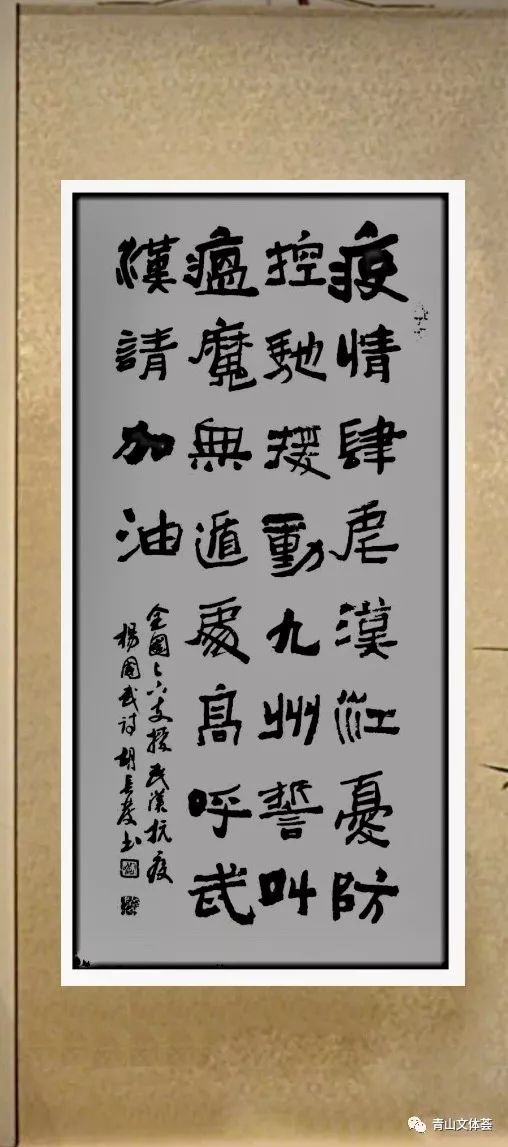 疫情肆虐漢江憂防
控馳援動九州誓叫
瘟魔無遁處髙呼武
漢請加油
全國上下支援武漢抗疫
楊國武詩胡長書
青山文体荟